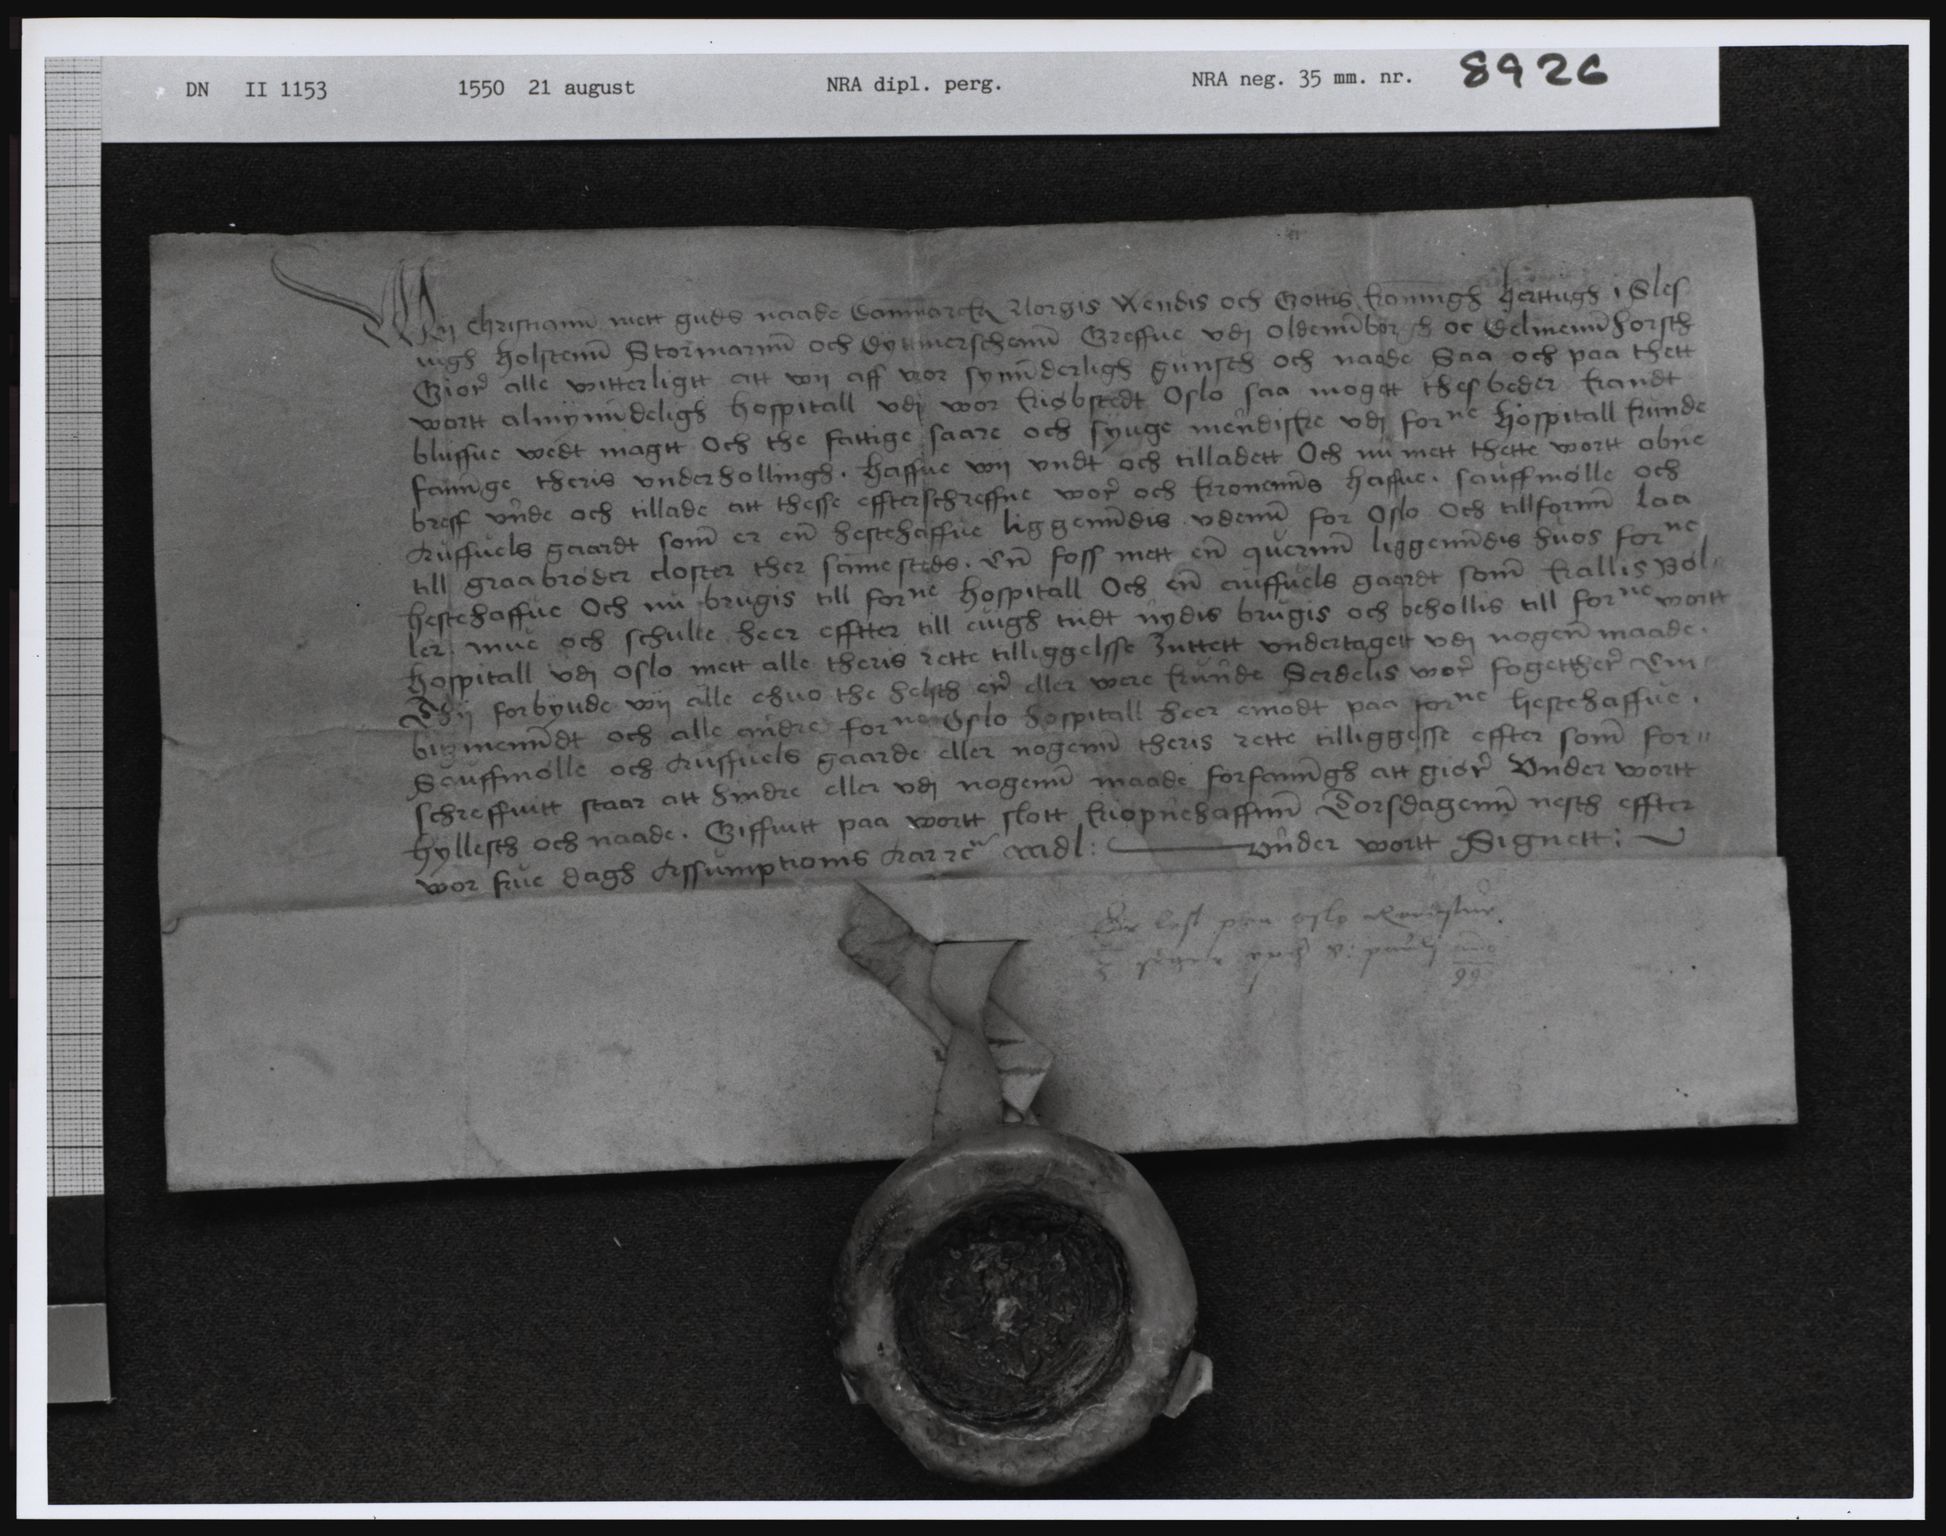 DN II 1153 1550 21 august NRA dipl. perg. NRA neg. 35 mm. nr. 8926
Wij Christiann mett guds naade Danmarcks Norgis Wendis och Gottis konningh Herttugh i Sles
uigh Holstenn Stormarnn och Dyttmerschenn Greffue vdj oldennborch oc Delmennhorsth
Giør alle witterligtt att wij aff wor synnderligh gunsth och naade Saa och paa thett
wortt almyndeligh hospitall vdj wor kiøbstedt Oslo saa mogett thesbeder kandt
bliffue wedt magtt Och the fattige saare och syuge mendiske vdj forne Hospitall kunde
fannge theris vnderhollingh. Haffue wij vndt och tilladett Och nu mett thette wortt obne
breff vnde och tillade att thesse effterschreffne wor och kronenns Haffue. sauffmølle och
Auffuels gaardt som er enn hestehaffue liggenndis vdenn for Oslo Och tillfornn laa
till graabrøder closter ther sammesteds. Enn foss mett enn quernn liggenndis huos forne
hestehaffue Och nu brugis till forne Hospitall Och enn auffuels gaardt som kallis Bøl-
ler. mue och schulle heer effter till euigh tiidt nydis brugis och behollis till forne wortt
hospitall vdj Oslo mett alle theris rette tilliggelsse Inttett vndertagett vdj nogen maade.
Thij forbyude wij alle ehuo the helsth er eller were kunde Serdelis wor fogetther Em-
bitzmenndt och alle andre forne Oslo hospitall heer emodt paa forne hestehaffue.
Sauffmølle och Auffuels gaarde eller nogenn theris rette tilliggelsse effter som for-
schreffuitt staar att hindre eller vdj nogenn maade forfanngh att giør Vnder wortt
hyllesth och naade. Giffuitt paa wortt slott kiøpnehaffnn Torsdagenn nesth effter
wor frue dagh Assumptionis Aar rc mdl: Vnder wortt Signett:
lest paa oslo
pauli
99